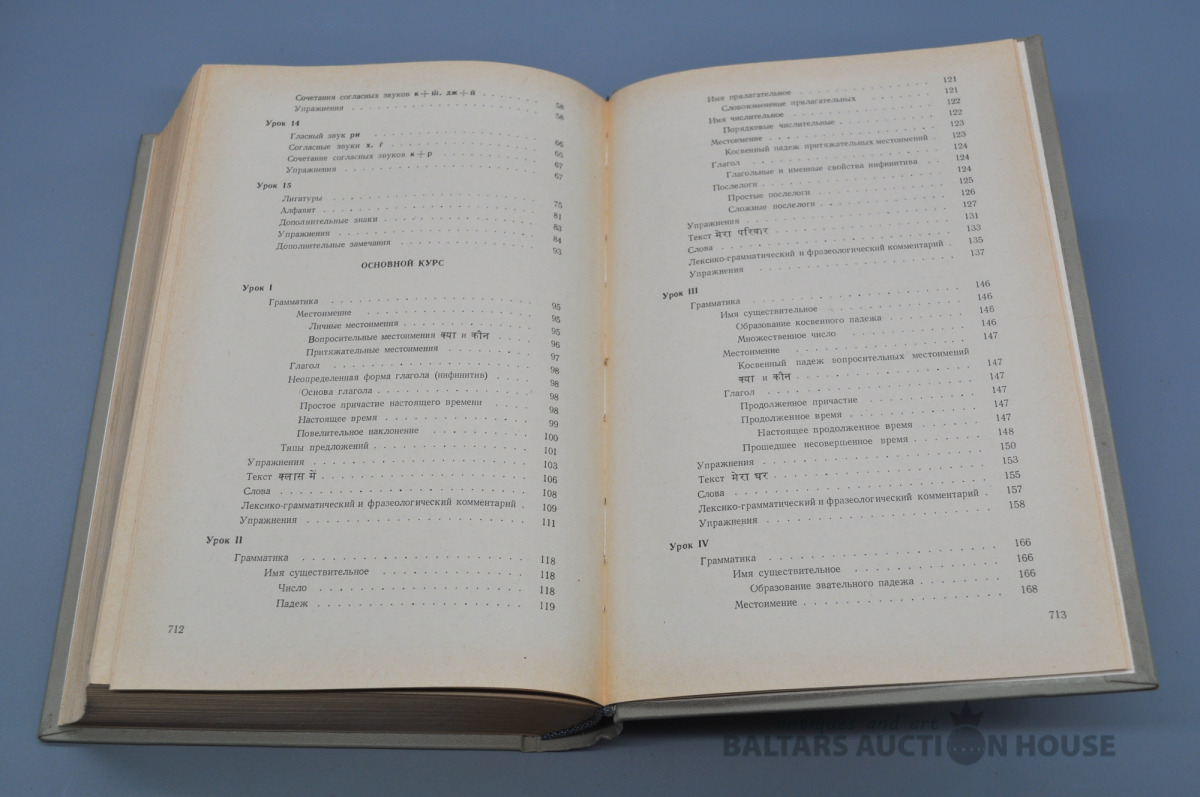 Сочетания согласных звуков к+ш, дж+й . . . . . . 58
Упражнения . . . . . . 58
Урок 14
Гласный звук ри . . . . . . 66
Согласные звуки х, г . . . . . . 66
Сочетание согласных звуков к+р . . . . . . 67
Упражнения . . . . . . 67
Урок 15
Лигатуры . . . . . . 75
Алфавит . . . . . . 81
Дополнительные знаки . . . . . . 83
Упражнения . . . . . . 84
Дополнительные замечания . . . . . . 93
ОСНОВНОЙ КУРС
Урок I
Грамматика . . . . . . 95
Местоимение . . . . . . 95
Личные местоимения . . . . . . 95
Вопросительные местоимения क्या и कौन . . . . . . 96
Притяжательные местоимения . . . . . . 97
Глагол . . . . . . 98
Неопределенная форма глагола (инфинитив) . . . . . . 98
Основа глагола . . . . . . 98
Простое причастие настоящего времени . . . . . . 98
Настоящее время . . . . . . 99
Повелительное наклонение . . . . . . 100
Типы предложений . . . . . . 101
Упражнения . . . . . . 103
Текст क्लास में . . . . . . 106
Слова . . . . . . 108
Лексико-грамматический и фразеологический комментарий . 109
Упражнения . . . . . . 111
Урок II
Грамматика . . . . . . 118
Имя существительное . . . . . . 118
Число . . . . . . 118
Падеж . . . . . . 119
712
Имя прилагательное . . . . . . 121
Словоизменение прилагательных . . . . . . 121
Имя числительное . . . . . . 122
Порядковые числительные . . . . . . 122
Местоимение . . . . . . 123
Косвенный падеж притяжательных местоимений . 123
Глагол . . . . . . 124
Глагольные и именные свойства инфинитива . . 124
Послелоги . . . . . . 124
Простые послелоги . . . . . . 125
Сложные послелоги . . . . . . 126
Упражнения . . . . . . 127
Текст मेरा परिवार . . . . . . 131
Слова . . . . . . 133
Лексико-грамматический и фразеологический комментарий . 135
Упражнения . . . . . . 137
Урок III
Грамматика . . . . . . 146
Имя существительное . . . . . . 146
Образование косвенного падежа . . . . . . 146
Множественное число . . . . . . 146
Местоимение . . . . . . 147
Косвенный падеж вопросительных местоимений
क्या и कौन . . . . . . 147
Глагол . . . . . . 147
Продолженное причастие . . . . . . 147
Продолженное время . . . . . . 147
Настоящее продолженное время . . . . . . 147
Прошедшее несовершенное время . . . . . . 148
Упражнения . . . . . . 150
Текст मेरा घर . . . . . . 153
Слова . . . . . . 155
Лексико-грамматический и фразеологический комментарий . 157
Упражнения . . . . . . 158
Урок IV
Грамматика . . . . . . 166
Имя существительное . . . . . . 166
Образование звательного падежа . . . . . . 166
Местоимение . . . . . . 168
713
antiques and art
BALTARS AUCTION HOUSE